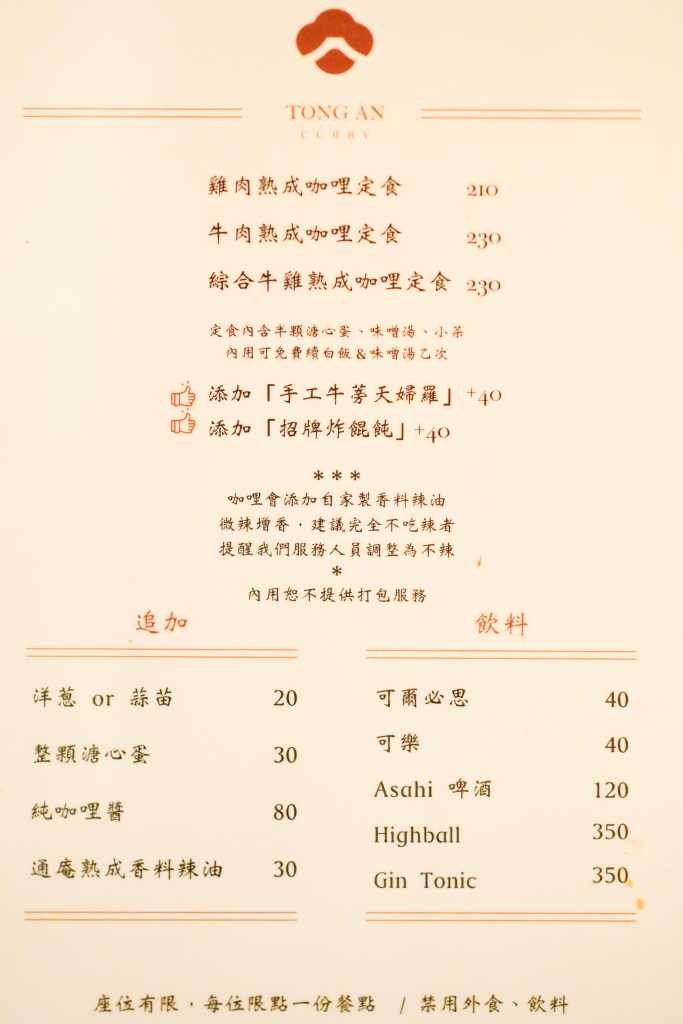 TONG AN
CURRY
雞肉熟成咖哩定食 210
牛肉熟成咖哩定食 230
綜合牛雞熟成咖哩定食 230
定食內含半顆溏心蛋、味噌湯、小菜
內用可免費續白飯&味噌湯乙次
添加「手工牛蒡天婦羅」+40
添加「招牌炸餛飩」+40
***
咖哩會添加自家製香料辣油
微辣增香，建議完全不吃辣者
提醒我們服務人員調整為不辣
*
內用恕不提供打包服務
追加
洋蔥 or 蒜苗 20
整顆溏心蛋 30
純咖哩醬 80
通庵熟成香料辣油 30
飲料
可爾必思 40
可樂 40
Asahi 啤酒 120
Highball 350
Gin Tonic 350
座位有限，每位限點一份餐點 / 禁用外食、飲料